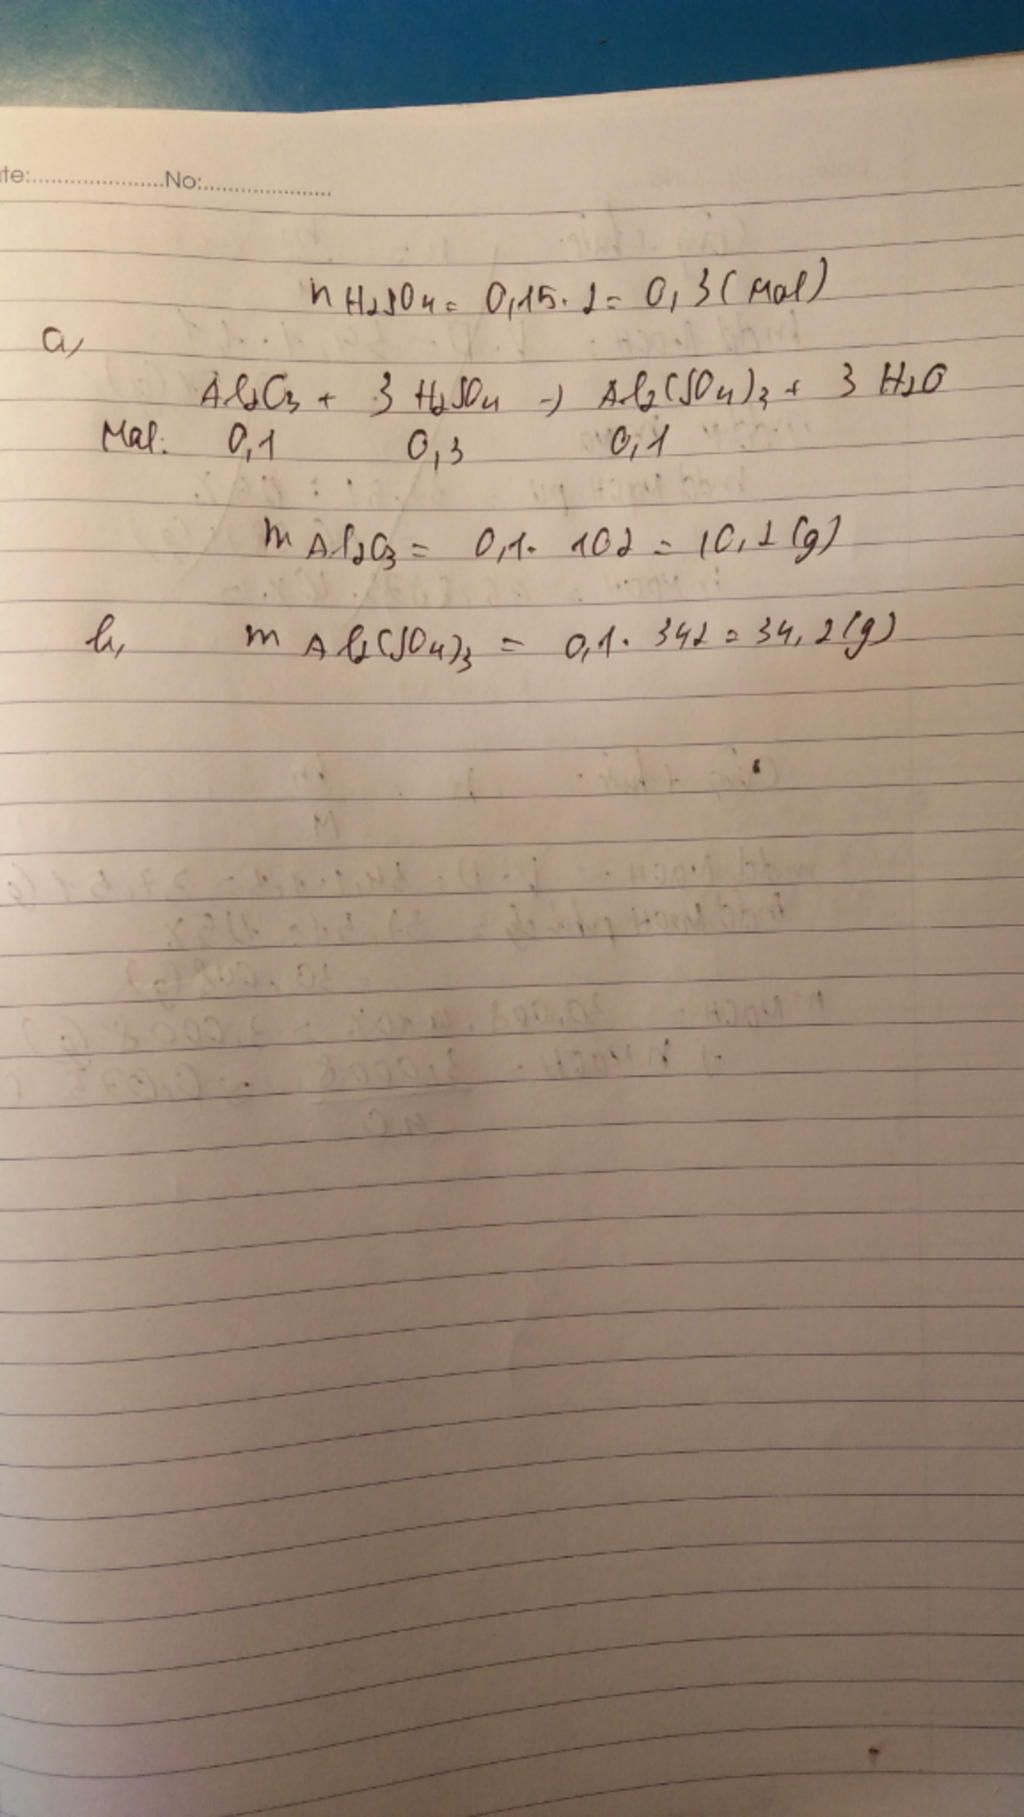 te:....................No:....................
nH₂SO₄ = 0,15. 2 = 0,3 (mol)
a,
Al₂O₃ + 3 H₂SO₄ → Al₂(SO₄)₃ + 3 H₂O
Mol: 0,1 0,3 0,1
m Al₂O₃ = 0,1. 102 = 10,2 (g)
b, m Al₂(SO₄)₃ = 0,1. 342 = 34,2 (g)